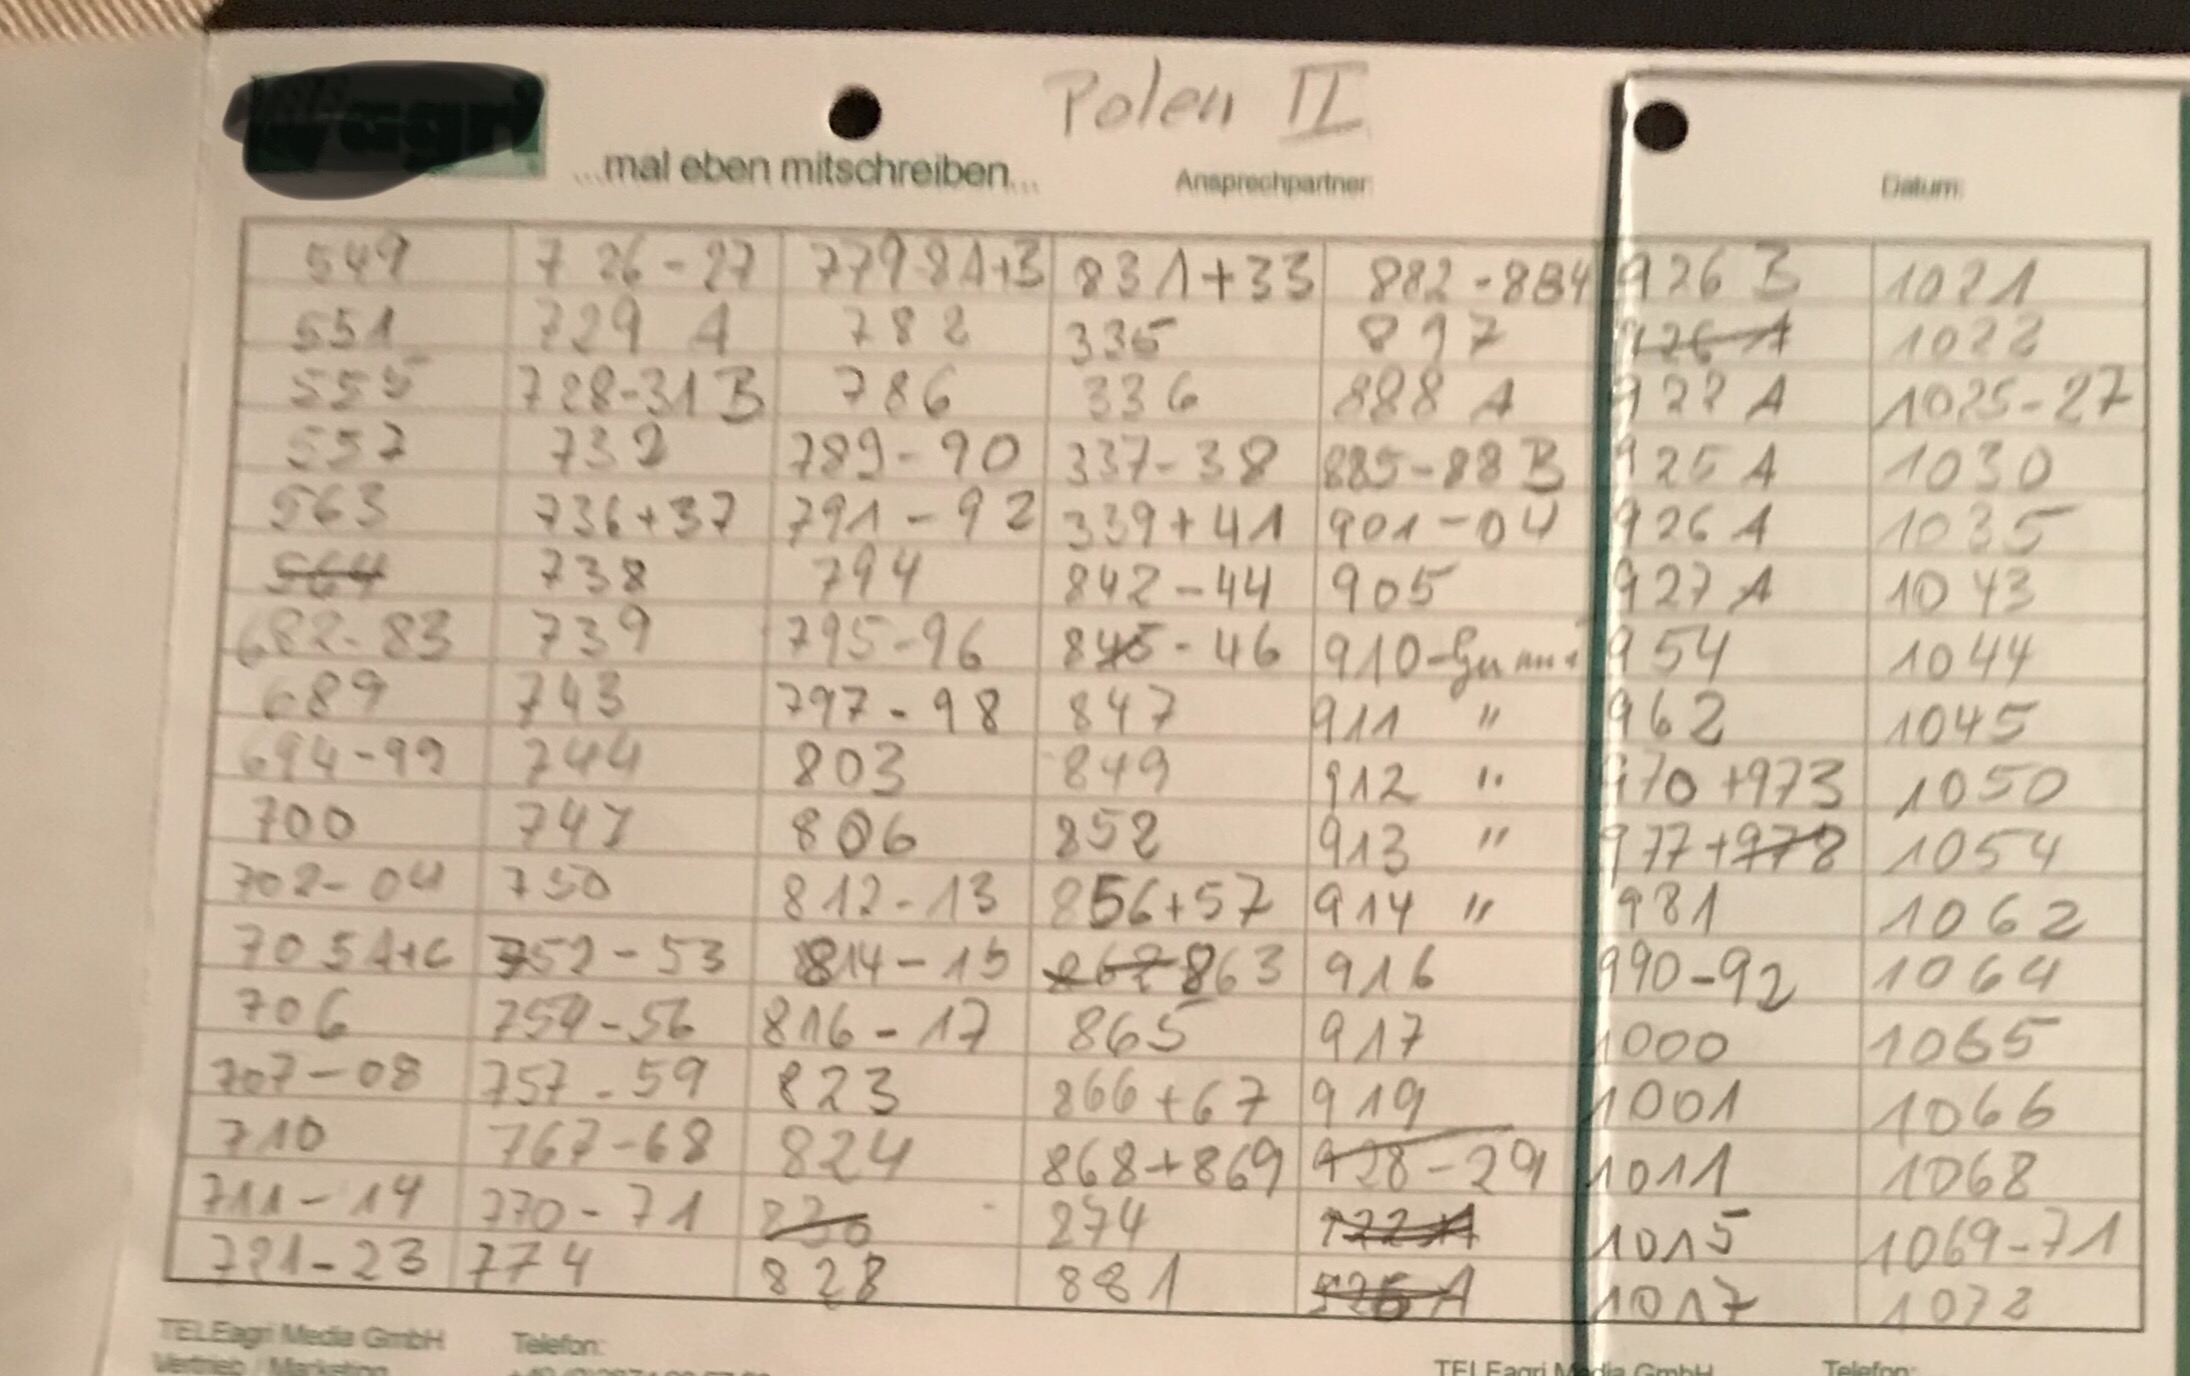 Polen II
...mal eben mitschreiben... Ansprechpartner: Datum:
549 726-27 779-81A+B 831+33 882-884 926 B 1021
551 729 A 782 335 897 926 A 1022
555 728-31 B 786 336 888 A 922 A 1025-27
557 732 789-90 337-38 885-88 B 925 A 1030
563 736+37 791-92 339+41 901-04 926 A 1035
564 738 794 842-44 905 927 A 1043
682-83 739 795-96 845-46 910- 954 1044
689 743 797-98 847 911 " 962 1045
694-99 744 803 849 912 " 970+973 1050
700 747 806 852 913 " 977+978 1054
702-04 750 812-13 856+57 914 " 981 1062
705A+C 752-53 814-15 862 863 916 990-92 1064
706 754-56 816-17 865 917 1000 1065
707-08 757-59 823 866+67 919 1001 1066
710 767-68 824 868+869 928-29 1011 1068
711-14 770-71 274 1015 1069-71
721-23 774 828 881 1017 1072
TELEagri Media GmbH Telefon: TELEagri Media GmbH Telefon:
Vertrieb / Marketing